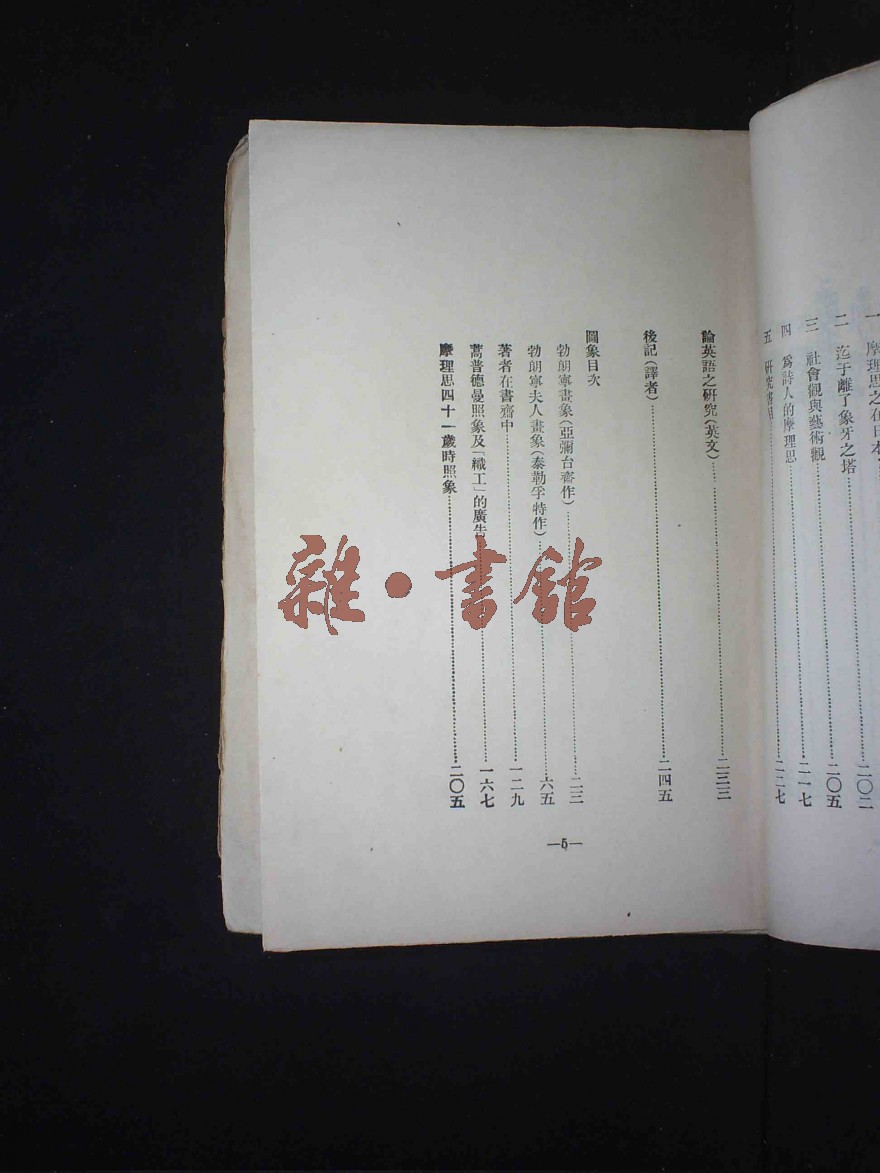 一 摩理思之在日本………二〇二
二 迄于離了象牙之塔………二〇五
三 社會觀與藝術觀………二一七
四 爲詩人的摩理思………二二七
五 研究書目
論英語之研究(英文)………二三三
後記(譯者)………二四五
圖象目次
勃朗寧畫象(亞彌台齋作)………二三
勃朗寧夫人畫象(泰勒孚特作)………六五
著者在書齋中………一二九
蒿普德曼照象及「織工」的廣告………一六七
摩理思四十一歲時照象………二〇五
—5—
雜·書館